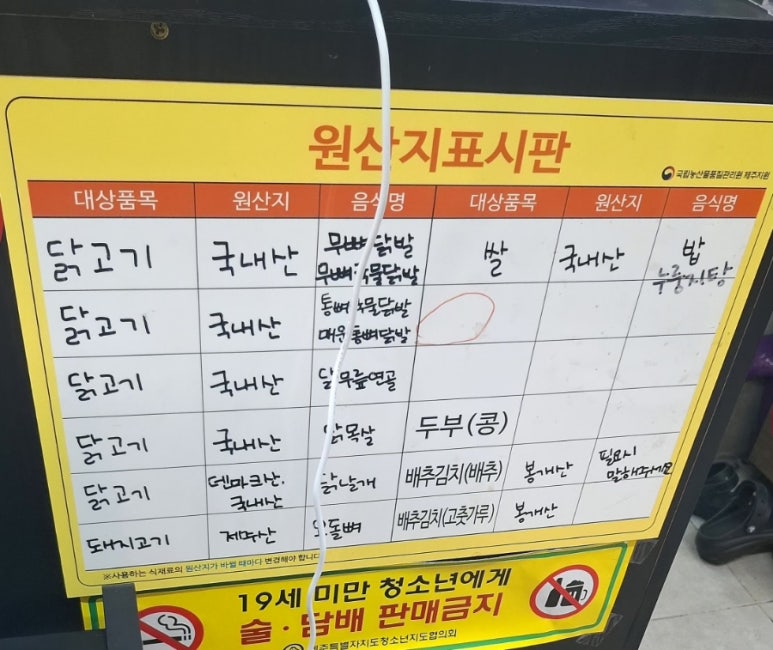 원산지표시판
국립농산물품질관리원 제주지원
대상품목 원산지 음식명 대상품목 원산지 음식명
닭고기 국내산 무뼈닭발 쌀 국내산 밥
무뼈국물닭발 누룽지탕
닭고기 국내산 통뼈국물닭발
매운통뼈닭발
닭고기 국내산 닭무릎연골
닭고기 국내산 닭목살 두부(콩)
닭고기 덴마크산. 닭날개 배추김치(배추) 봉개산 필요시
국내산 말해주세요
돼지고기 제주산 오돌뼈 배추김치(고춧가루) 봉개산
※사용하는 식재료의 원산지가 바뀔 때마다 변경해야 합니다
19세 미만 청소년에게
술·담배 판매금지
제주특별자치도청소년지도협의회